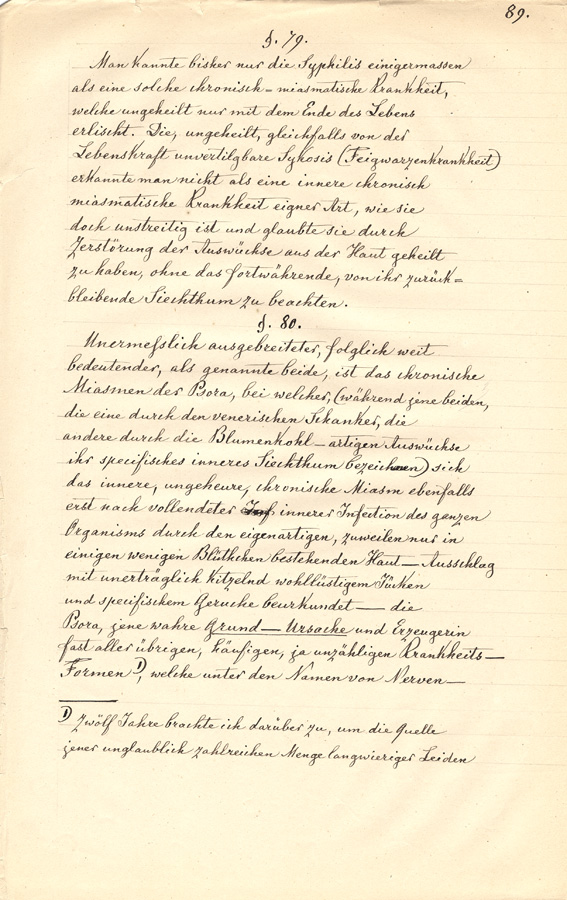 89.
§. 79.
Man kannte bisher nur die Syphilis einigermassen
als eine solche chronisch=miasmatische Krankheit,
welche ungeheilt nur mit dem Ende des Lebens
erlischt. Die, ungeheilt, gleichfalls von der
Lebenskraft unvertilgbare Sykosis (Feigwarzenkrankheit)
erkannte man nicht als eine innere chronisch
miasmatische Krankheit eigner Art, wie sie
doch unstreitig ist und glaubte sie durch
Zerstörung der Auswüchse aus der Haut geheilt
zu haben, ohne das fortwährende, von ihr zurück=
bleibende Siechthum zu beachten.
§. 80.
Unermeßlich ausgebreiteter, folglich weit
bedeutender, als genannte beide, ist das chronische
Miasmen der Psora, bei welcher, (während jene beiden,
die eine durch den venerischen Schanker, die
andere durch die Blumenkohl-artigen Auswüchse
ihr specifisches inneres Siechthum bezeichnen) sich
das innere, ungeheure, chronische Miasm ebenfalls
erst nach vollendeter Inf innerer Infection des ganzen
Organisms durch den eigenartigen, zuweilen nur in
einigen wenigen Blüthchen bestehenden Haut-Ausschlag
mit unerträglich kitzelnd wohllüstigem Jücken
und specifischem Geruche beurkundet — die
Psora, jene wahre Grund-Ursache und Erzeugerin
fast aller übrigen, häufigen, ja unzähligen Krankheits-
Formen 1), welche unter den Namen von Nerven-
1) Zwölf Jahre brachte ich darüber zu, um die Quelle
jener unglaublich zahlreichen Menge langwieriger Leiden